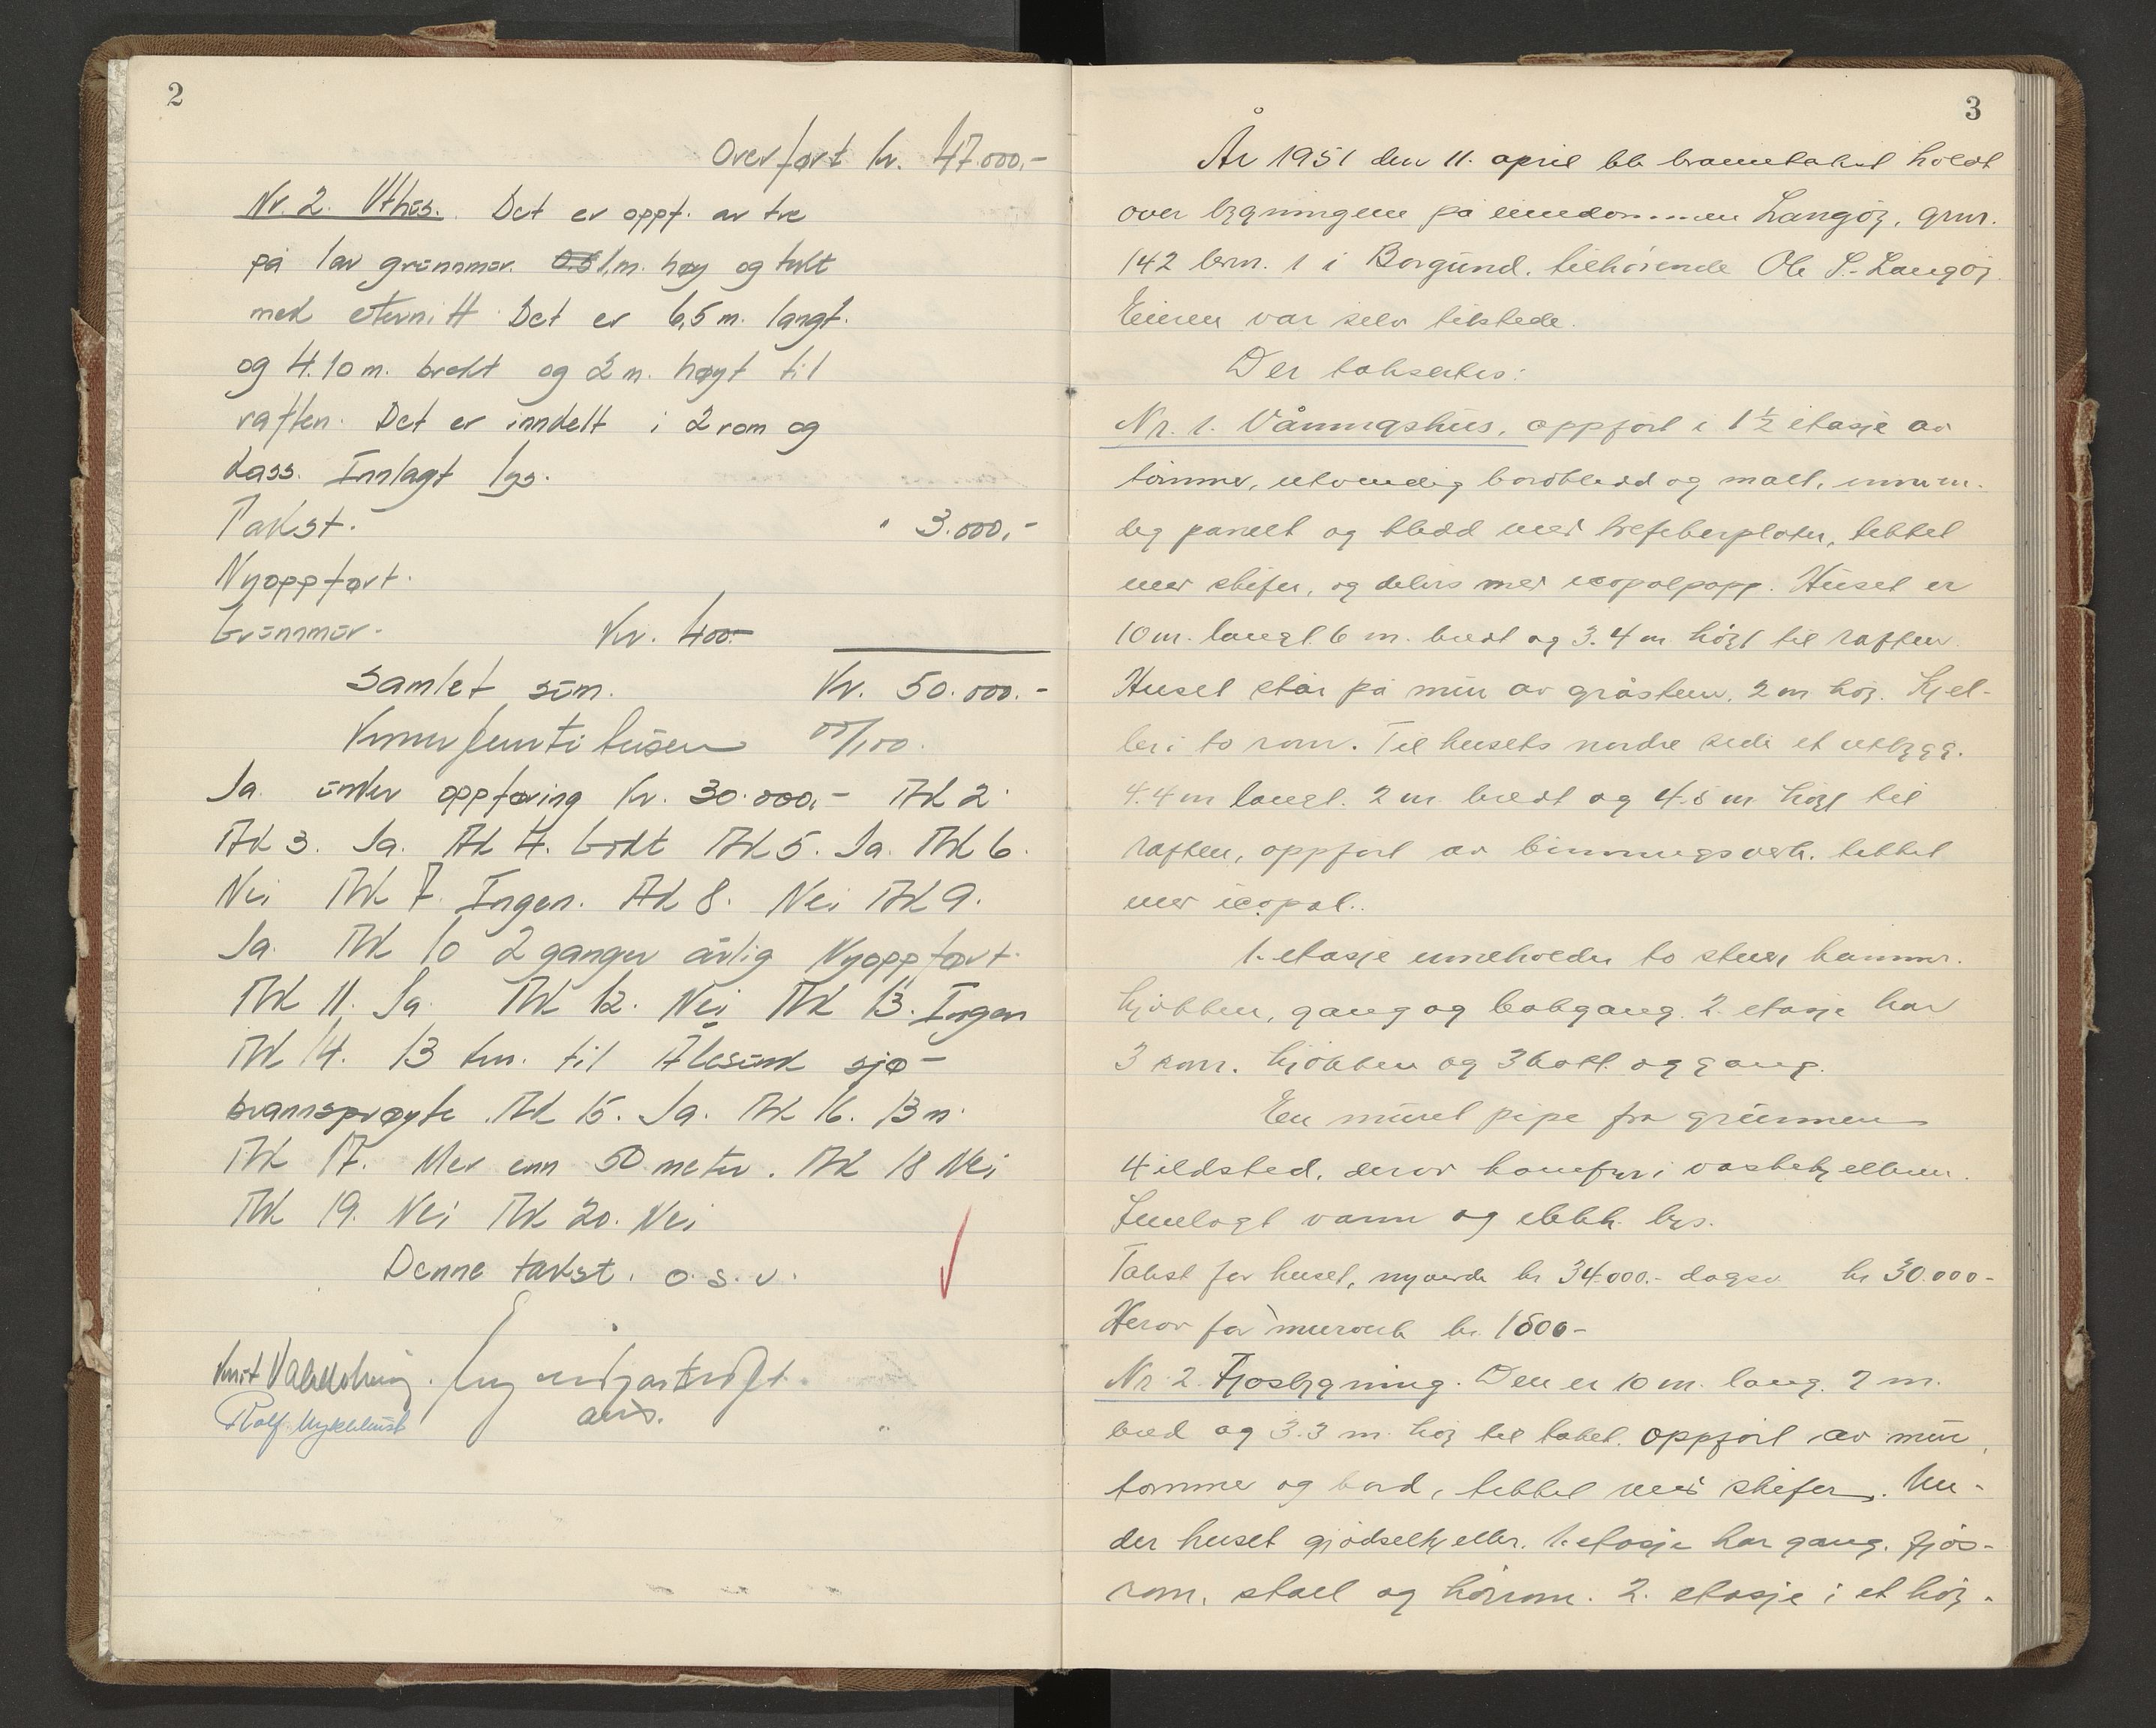 2
Overført kr. 47.000,-
Nr. 2. Uthus. Det er oppf. av tre
på lav grunnmur. 0.8 1,m. høy og tekt
med eternitt Det er 6,5 m. langt.
og 4.10 m. bredt og 2 m. høyt til
raften. Det er inndelt i 2 rom og
dass. Innlagt lys.
Takst. " 3.000,-
Nyoppført.
Grunnmur. Kr. 400-
Samlet sum. Kr. 50.000.-
Kroner femti tusen 00/100.
Ja. under oppføring kr. 30.000,- Ad 2.
Ad 3. Ja. Ad 4. Godt Ad 5. Ja. Ad 6.
Nei Ad 7. Ingen. Ad 8. Nei Ad 9.
Ja. Ad 10 2 ganger årlig Nyoppført.
Ad 11. Ja. Ad 12. Nei Ad 13. Ingen
Ad 14. 13 km. til Ålesund sjø-
brannsprøyte. Ad 15. Ja. Ad 16. 13 m.
Ad 17. Mer enn 50 meter. Ad 18 Nei
Ad 19. Nei Ad 20. Nei
Denne takst. o.s.v.
Knut
Rolf Myklebust
3
År 1951 den 11. april ble branntakst holdt
over bygningene på eiendommen Langøy, gnr.
142 brn. 1 i Borgund. tilhørende Ole S. Langøy
Eieren var selv tilstede.
Der taksertes:
Nr. 1. Våningshus, oppført i 1 1/2 etasje av
tømmer, utvendig bordkledd og malt, innven-
dig panelt og kledd med trefiberplater, tekket
med skifer, og delvis med icopalpapp. Huset er
10 m. langt 6 m. bredt og 3.4 m høyt til raften.
Huset står på mur av gråsten. 2 m høy. Kjel-
ler i to rom. Til husets nordre side et utbygg.
4.4 m langt. 2 m bredt og 4.5 m høyt til
raften, oppført av binningsverk. tekket
med icopal.
1. etasje inneholder to stuer, kammer.
kjøkken, gang og bakgang. 2. etasje har
3 rom. kjøkken og 3 kott og gang.
En muret pipe fra grunnen
4 ildsted, derav komfyr i vaskekjelleren.
Innlagt vann og elekk. lys.
Takst for huset, nyverdi kr 34.000.- dagsv. kr 30.000-
Herav for murverk kr. 1500-
Nr. 2 Fjosbygning. Den er 10 m. lang. 7 m.
bred og 3.3 m. høy til taket. oppført av mur,
tømmer og bord, tekket med skifer. Un-
der huset gjødselkjeller. 1. etasje har gang. fjøs-
rom. stall og høirom. 2. etasje i et høy-